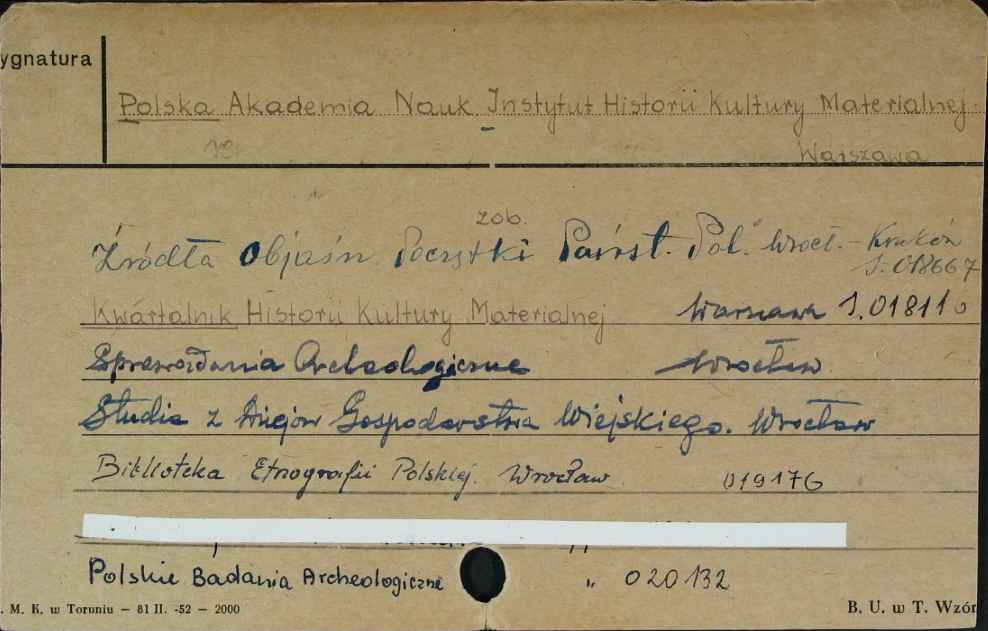 ygnatura
Polska Akademia Nauk Instytut Historii Kultury Materialnej.
Warszawa
zob.
Źródła Objaśn. Początki Państ. Pol. Wrocł. - Kraków
J. 018667
Kwartalnik Historii Kultury Materialnej Warszawa J. 018110
Sprawozdania Archeologiczne Wrocław
Studia z Dziejów Gospodarstwa Wiejskiego. Wrocław
Biblioteka Etnografii Polskiej. Wrocław 019176
Polskie Badania Archeologiczne " 020132
. M. K. w Toruniu — 81 II. -52 — 2000
B. U. w T. Wzór